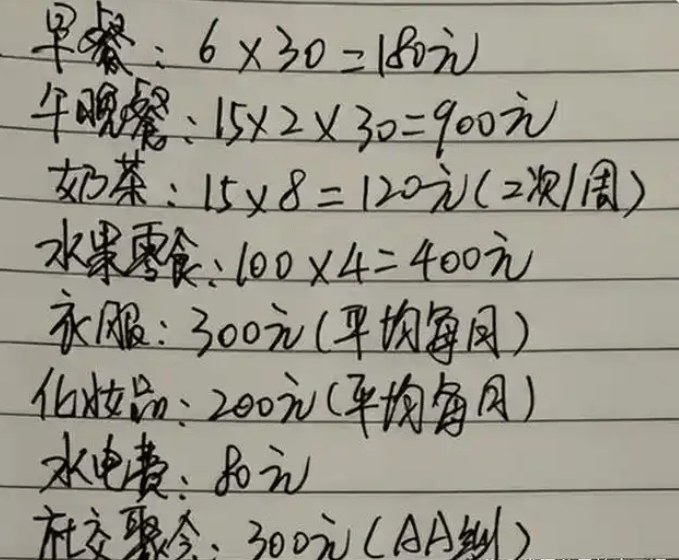 早餐：6×30=180元
午晚餐：15×2×30=900元
奶茶：15×8=120元(2次/周)
水果零食：100×4=400元
衣服：300元(平均每月)
化妆品：200元(平均每月)
水电费：80元
社交聚会：300元(AA制)